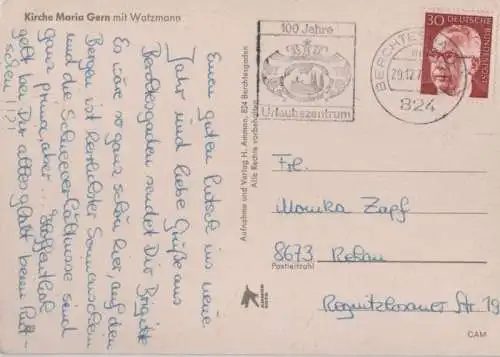 Kirche Maria Gern mit Watzmann
Einen guten Rutsch ins neue
Jahr und liebe Grüße aus
Berchtesgaden sendet Dir Brigitte
Es wäre so ganz schön hier, auf den
Bergen ist herrlichster Sonnenschein
und die Schneeverhältnisse sind
ganz prima, aber... Hoffentlich
geht bei Dir alles glatt beim Rut-
schen!?!
Aufnahme und Verlag H. Ammon, 824 Berchtesgaden
Alle Rechte vorbehalten
100 Jahre
Urlaubszentrum
BERCHTES
29.12.7
824
30 DEUTSCHE
BUNDESPOST
Frl.
Monika Zapf
8673 Rehau
Postleitzahl
Regnitzlosauer Str. 19
AMMON
CAM